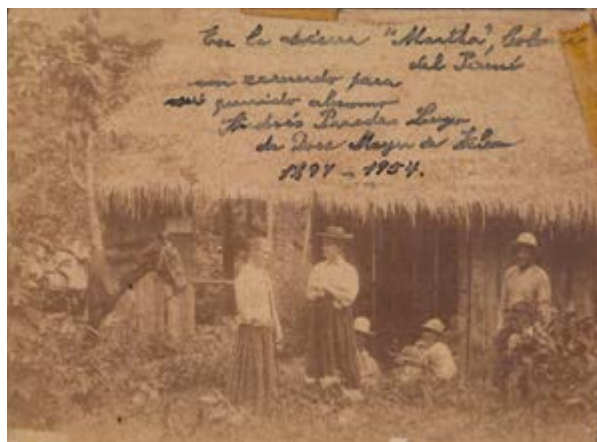 En la "Martha", Colonia
del Perené
un recuerdo para
mi querido alumno
Andrés Paredes Luzyo
de Dora Mayer de Zulen
1897 - 1954.